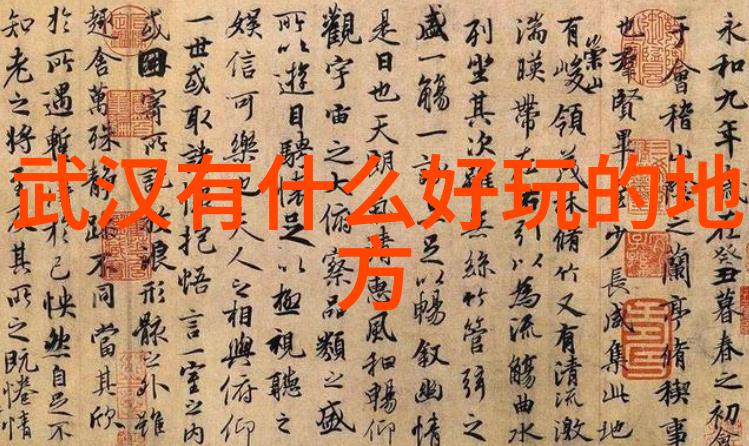 武汉有什么好玩的地
方
永和九年在癸丑暮春之初會
于會稽山之蘭亭脩稧事
也群賢畢少長咸集此地
有崇山峻領茂林脩竹又有清流激
湍暎帶左右引以為流觴曲水
列坐其次雖無絲竹管弦之
盛一觴一足以暢叙幽情
是日也天朗清惠風和暢仰
觀宇宙之大俯察品類之盛
所以遊目騁懷足以極視聽之
娛信可樂也夫人之相與俯仰
一世或取諸抱悟言一室之內
或因寄所託浪形骸之外雖
趣舍萬殊靜躁不同當其欣
於所遇暫於己怏然自足不
知老之將至其所之既惓情